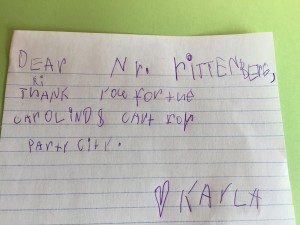 DEAr Nr. rITTENBErG,
THANK YOU For THE
CArT For
PArTY CITY.
♡ KArLA